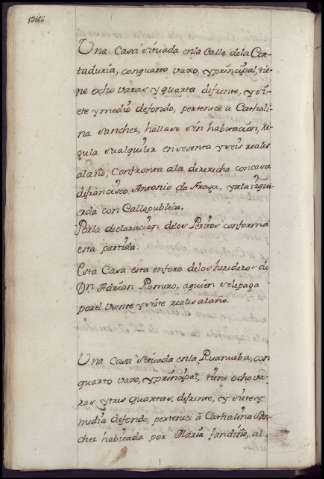 Una Casa situada en la Calle de la Con-
taduria, con quarto vaxo, y principal, tie-
ne ocho varas y quarta de frente, y sie-
te y media de fondo, pertenece a Cathali-
na Sanchez, hallase sin habitacion, Re-
gula su alquiler en sesenta y seis reales
al año, Confronta a la derecha con casa
de francisco Antonio de Fraga, y a la izqui-
erda con Calle publica.
Por la declaracion de los Peritos conforma
esta partida.
Esta Casa esta en foro de los herederos de
Dn. Adrian Romero, a quien se le paga
por el veinte y siete reales al año.
Una Casa situada en la Ruanueba, con
quarto vaxo, y principal, tiene ocho va-
ras, y tres quartas, de frente, y siete y
media de fondo, pertenece a Cathalina San-
chez habitada por Maria Jandiña, al